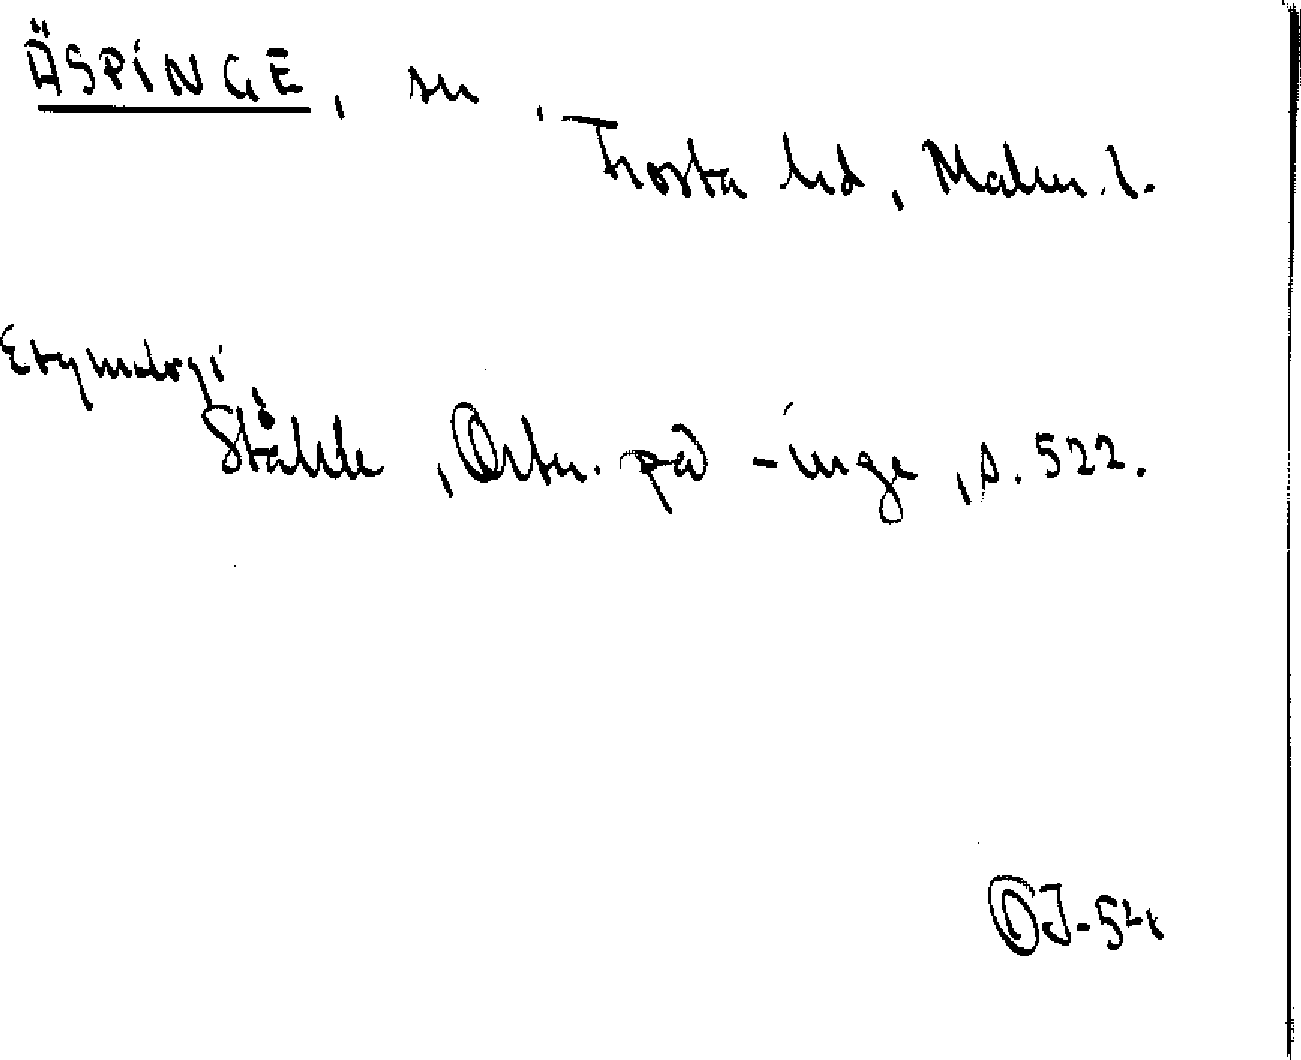 ÄSPINGE, sn, Frosta hd, Malm. l.
Etymologi
Ståhle, Ortn. på -inge, s. 522.
OJ-54